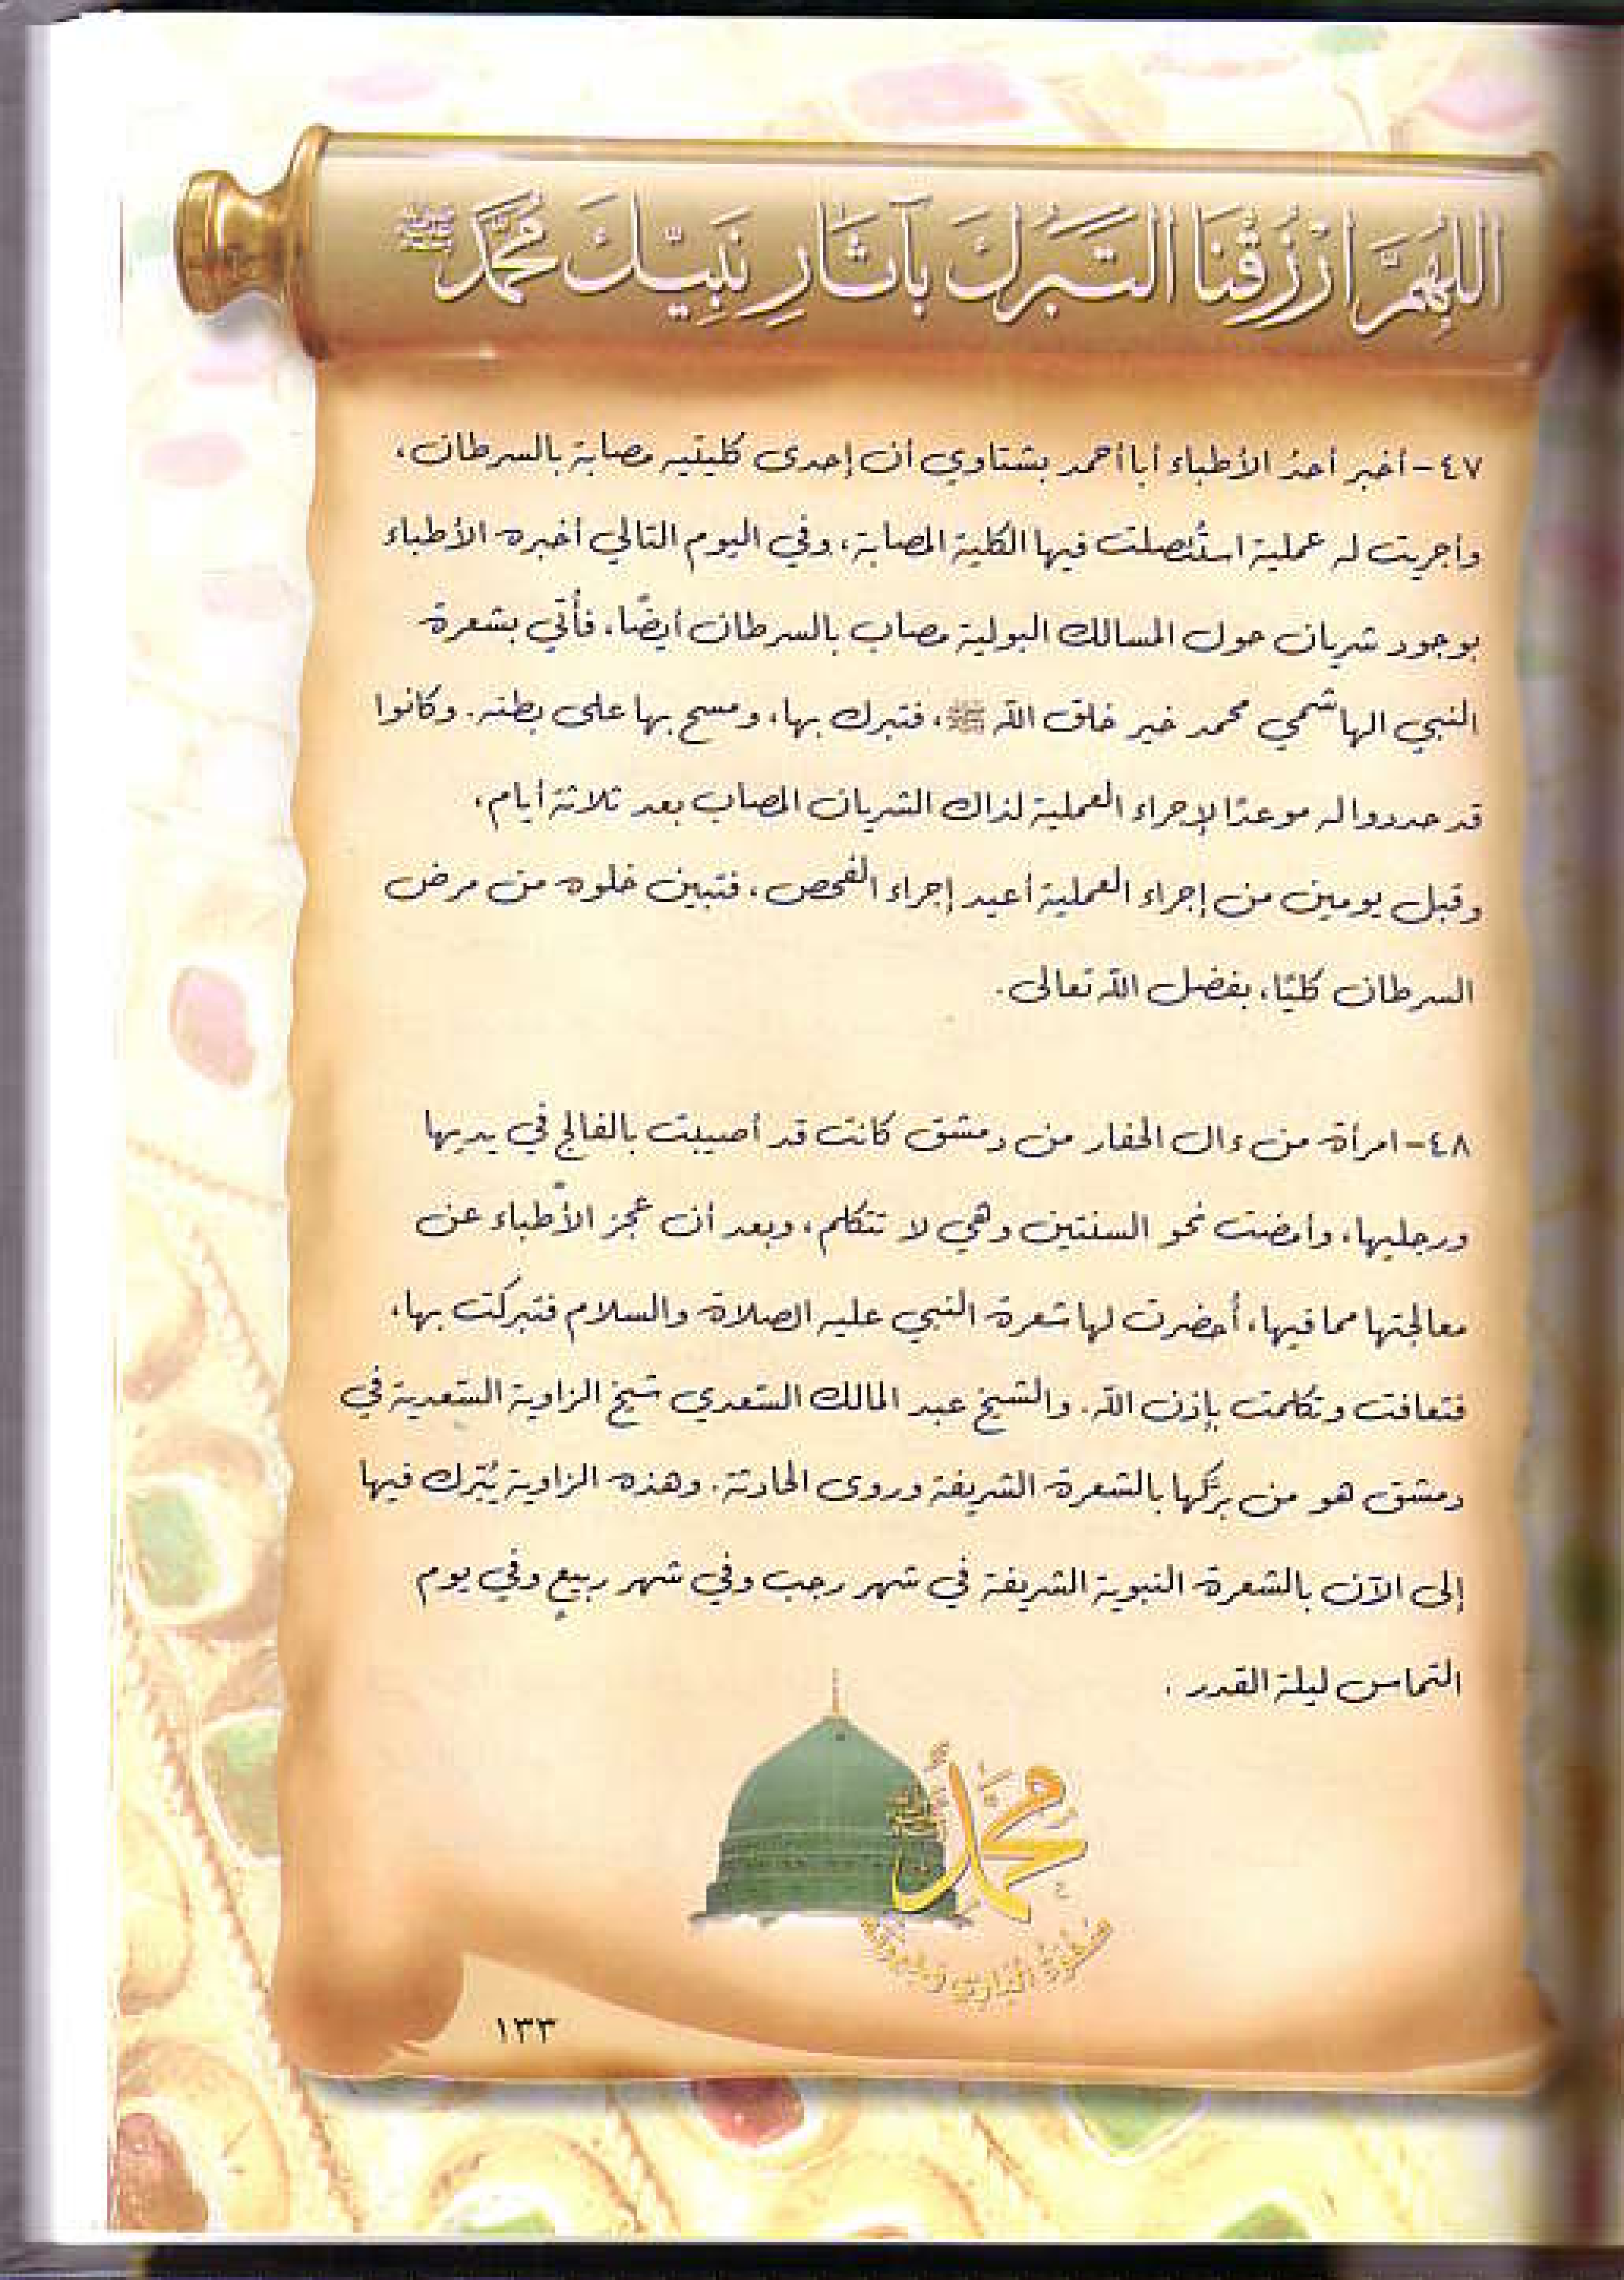 اللهُمَّ ارْزُقْنَا التَّبَرُّكَ بِآثَارِ نَبِيِّكَ مُحَمَّد ﷺ
٤٧- أخبر أحدُ الأطباء أبا أحمد بشتاوي أن إحدى كليتيه مصابة بالسرطان،
وأجريت له عملية استُئصلت فيها الكلية المصابة، وفي اليوم التالي أخبره الأطباء
بوجود شريان حول المسالك البولية مصاب بالسرطان أيضًا، فأُتي بشعرة
النبي الهاشمي محمد خير خلق الله ﷺ، فتبرك بها، ومسح بها على بطنه. وكانوا
قد حددوا له موعدًا لإجراء العملية لذاك الشريان المصاب بعد ثلاثة أيام،
وقبل يومين من إجراء العملية أعيد إجراء الفحص، فتبين خلوه من مرض
السرطان كليًا، بفضل الله تعالى.
٤٨- امرأة من ءال الحفار من دمشق كانت قد أصيبت بالفالج في يديها
ورجليها، وأمضت نحو السنتين وهي لا تتكلم، وبعد أن عجز الأطباء عن
معالجتها مما فيها، أُحضرت لها شعرة النبي عليه الصلاة والسلام فتبركت بها،
فتعافت وتكلمت بإذن الله. والشيخ عبد المالك السَّعدي شيخ الزاوية السَّعدية في
دمشق هو من برَّكها بالشعرة الشريفة وروى الحادثة. وهذه الزاوية يُتبرك فيها
إلى الآن بالشعرة النبوية الشريفة في شهر رجب وفي شهر ربيع وفي يوم
التماس ليلة القدر.
مُحَمَّدٌ ﷺ
صَفْوَةُ الْبَارِي
١٣٣